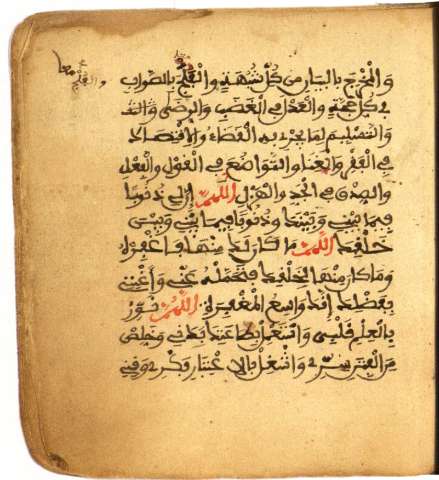 والفلج معا
والمخرج بالبيان من كل شبهة والفلج بالصواب
في كل حجة والعدل في الغضب والرضى
والتسليم لما يجري به القضاء والاقتصاد
في الفقر والغنا والتواضع في القول والفعل
والصدق في الجد والهزل اللهم إن لي ذنوبا
فيما بيني وبينك وذنوبا فيما بيني وبين
خلقك اللهم ما كان لك منها فاغفره
وما كان منها لخلقك فتحمله عني وأغنني
بفضلك إنك واسع المغفرة اللهم نور
بالعلم قلبي واستعمل بطاعتك بدني وخلص
من الفتن سري واشغل بالاعتبار فكري وقني